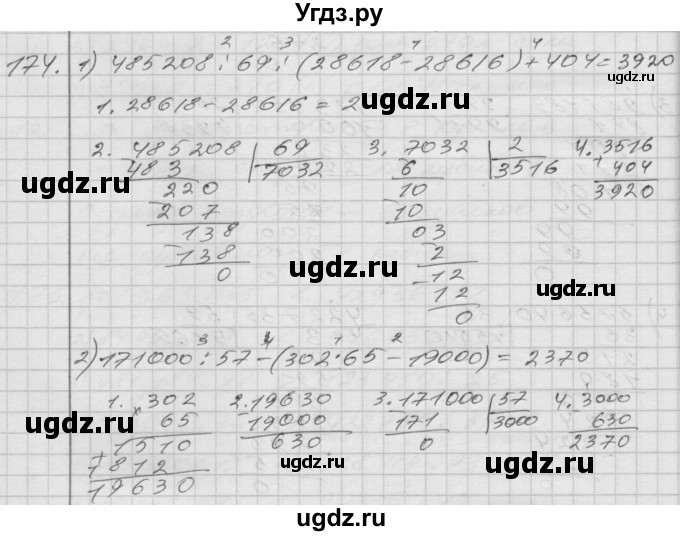 Угдз.ру
174. 1) 485208 : 69 : (28618 - 28616) + 404 = 3920
2 3 1 4
1. 28618 - 28616 = 2
2. 485208 69 3. 7032 2 4. 3516
483 7032 6 3516 + 404
220 10 3920
207 10
138 03
138 2
0 12
12
0
2) 171000 : 57 - (302 · 65 - 19000) = 2370
3 4 1 2
1. 302 2. 19630 3. 171000 57 4. 3000
× 65 19000 171 3000 630
+ 1510 630 0 2370
1812
19630
ugdz.ru
ugdz.ru
ugdz.ru
ugdz.ru
ugdz.ru
ugdz.ru
ugdz.ru
ugdz.ru
ugdz.ru
ugdz.ru
ugdz.ru
ugdz.ru
ugdz.ru